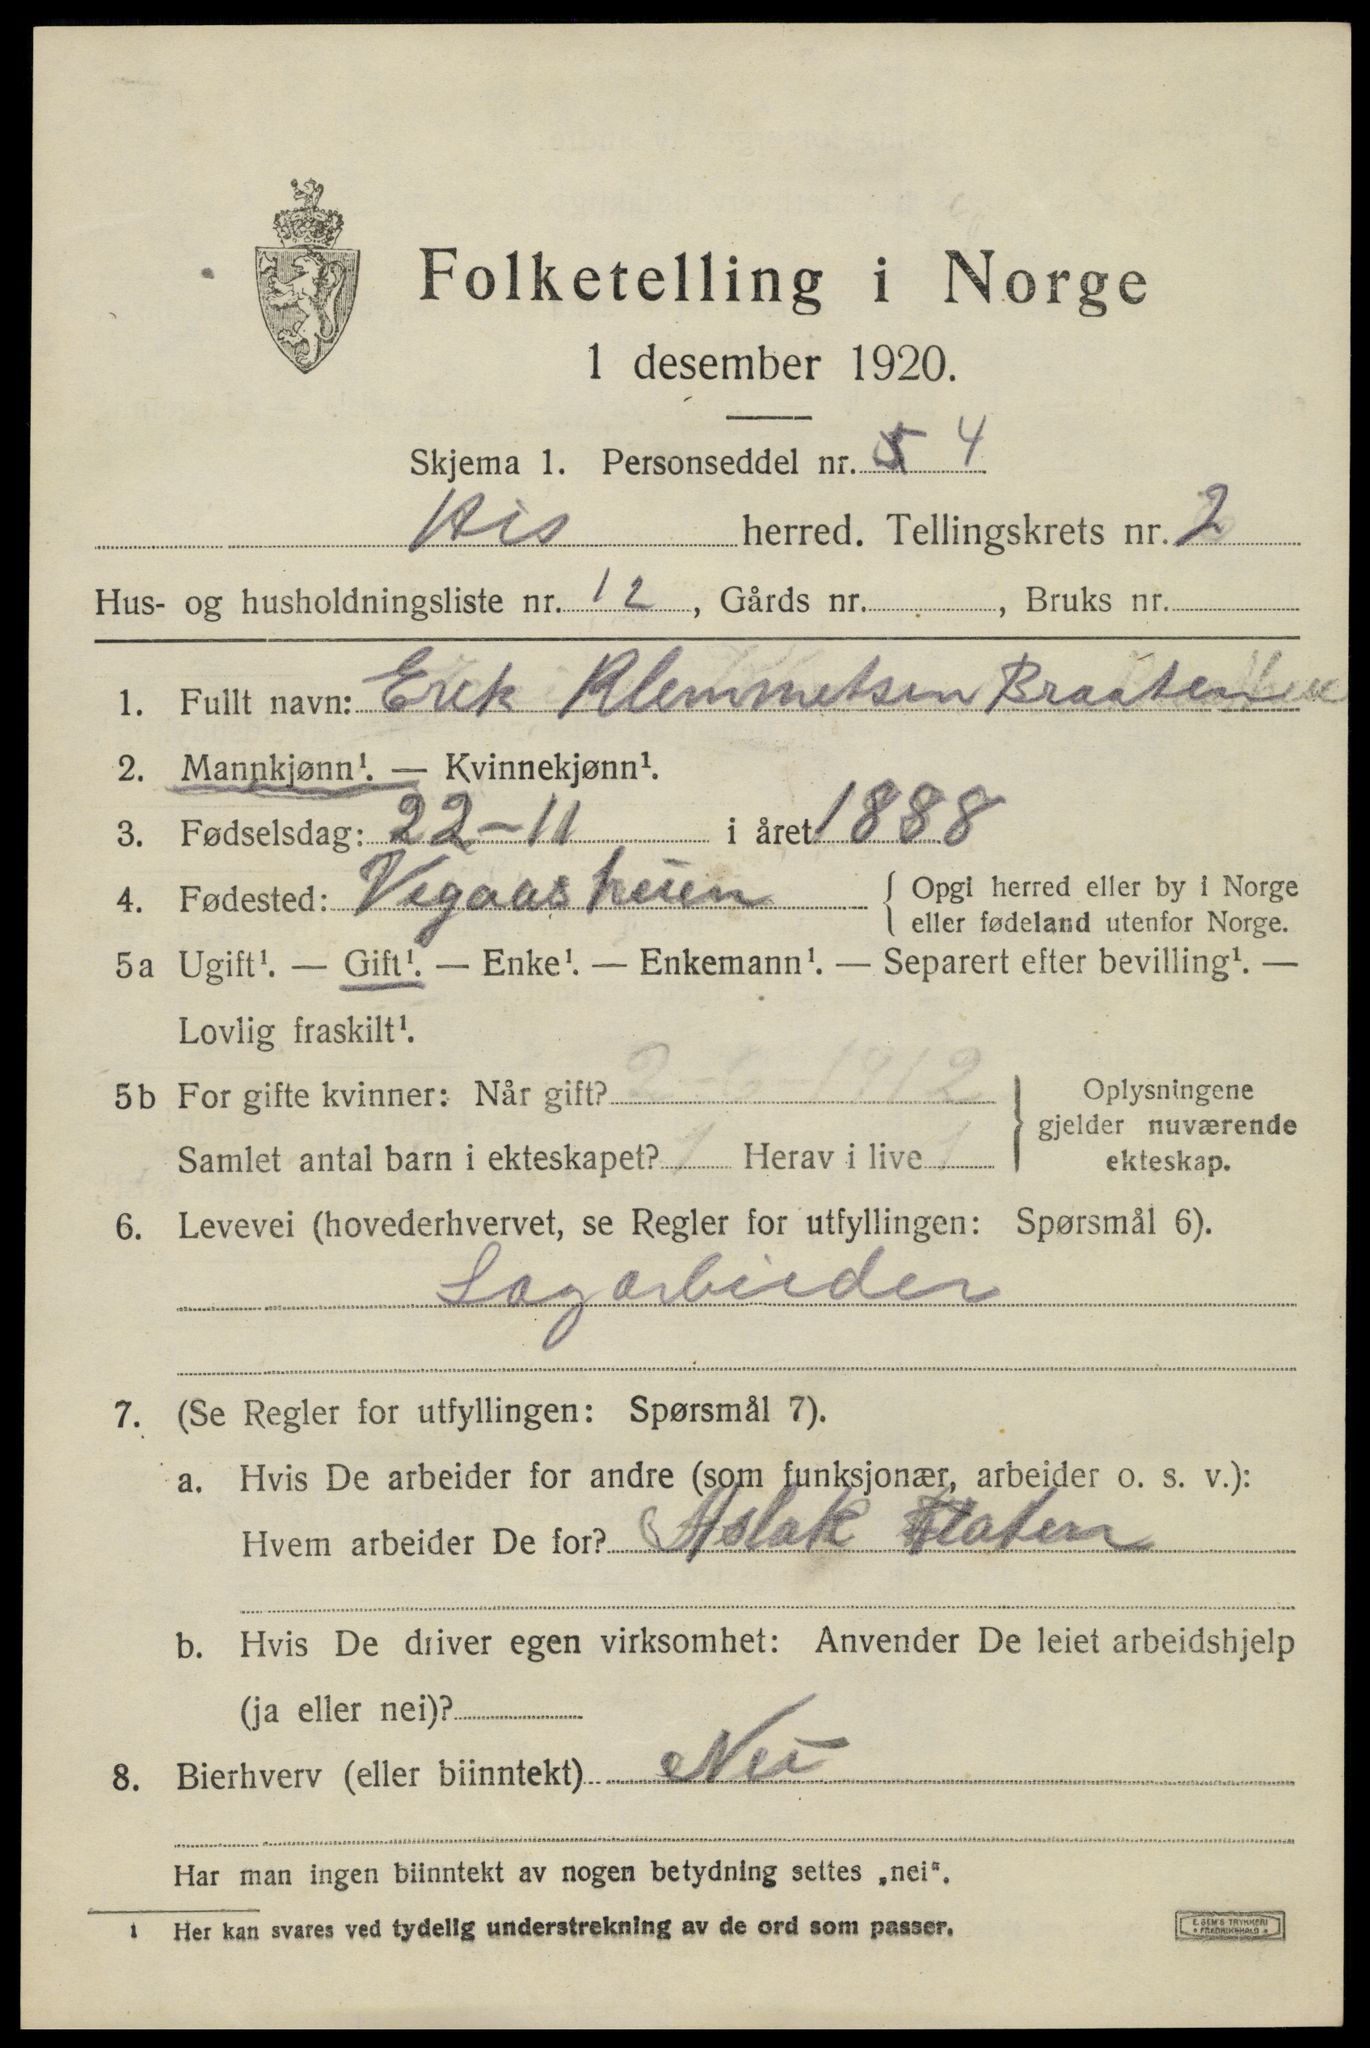 Folketelling i Norge
1 desember 1920.
Skjema 1. Personseddel nr. 5 4
His herred. Tellingskrets nr. 2
Hus- og husholdningsliste nr. 12, Gårds nr. , Bruks nr.
1. Fullt navn: Erek Klemmetsen Braaten
2. Mannkjønn¹. — Kvinnekjønn¹.
3. Fødselsdag: 22-11 i året 1888
4. Fødested: Vegaasheien { Opgi herred eller by i Norge
eller fødeland utenfor Norge.
5a Ugift¹. — Gift¹. — Enke¹. — Enkemann¹. — Separert efter bevilling¹. —
Lovlig fraskilt¹.
5b For gifte kvinner: Når gift? 2-6-1912 } Oplysningene
gjelder nuværende
Samlet antal barn i ekteskapet? 1 Herav i live 1 ekteskap.
6. Levevei (hovederhvervet, se Regler for utfyllingen: Spørsmål 6).
Sagarbieder
7. (Se Regler for utfyllingen: Spørsmål 7).
a. Hvis De arbeider for andre (som funksjonær, arbeider o. s. v.):
Hvem arbeider De for? Aslak
b. Hvis De driver egen virksomhet: Anvender De leiet arbeidshjelp
(ja eller nei)?
8. Bierhverv (eller biinntekt) Nei
Har man ingen biinntekt av nogen betydning settes „nei“.
1 Her kan svares ved tydelig understrekning av de ord som passer.
E. SEM'S TRYKKERI
FREDRIKSHALD